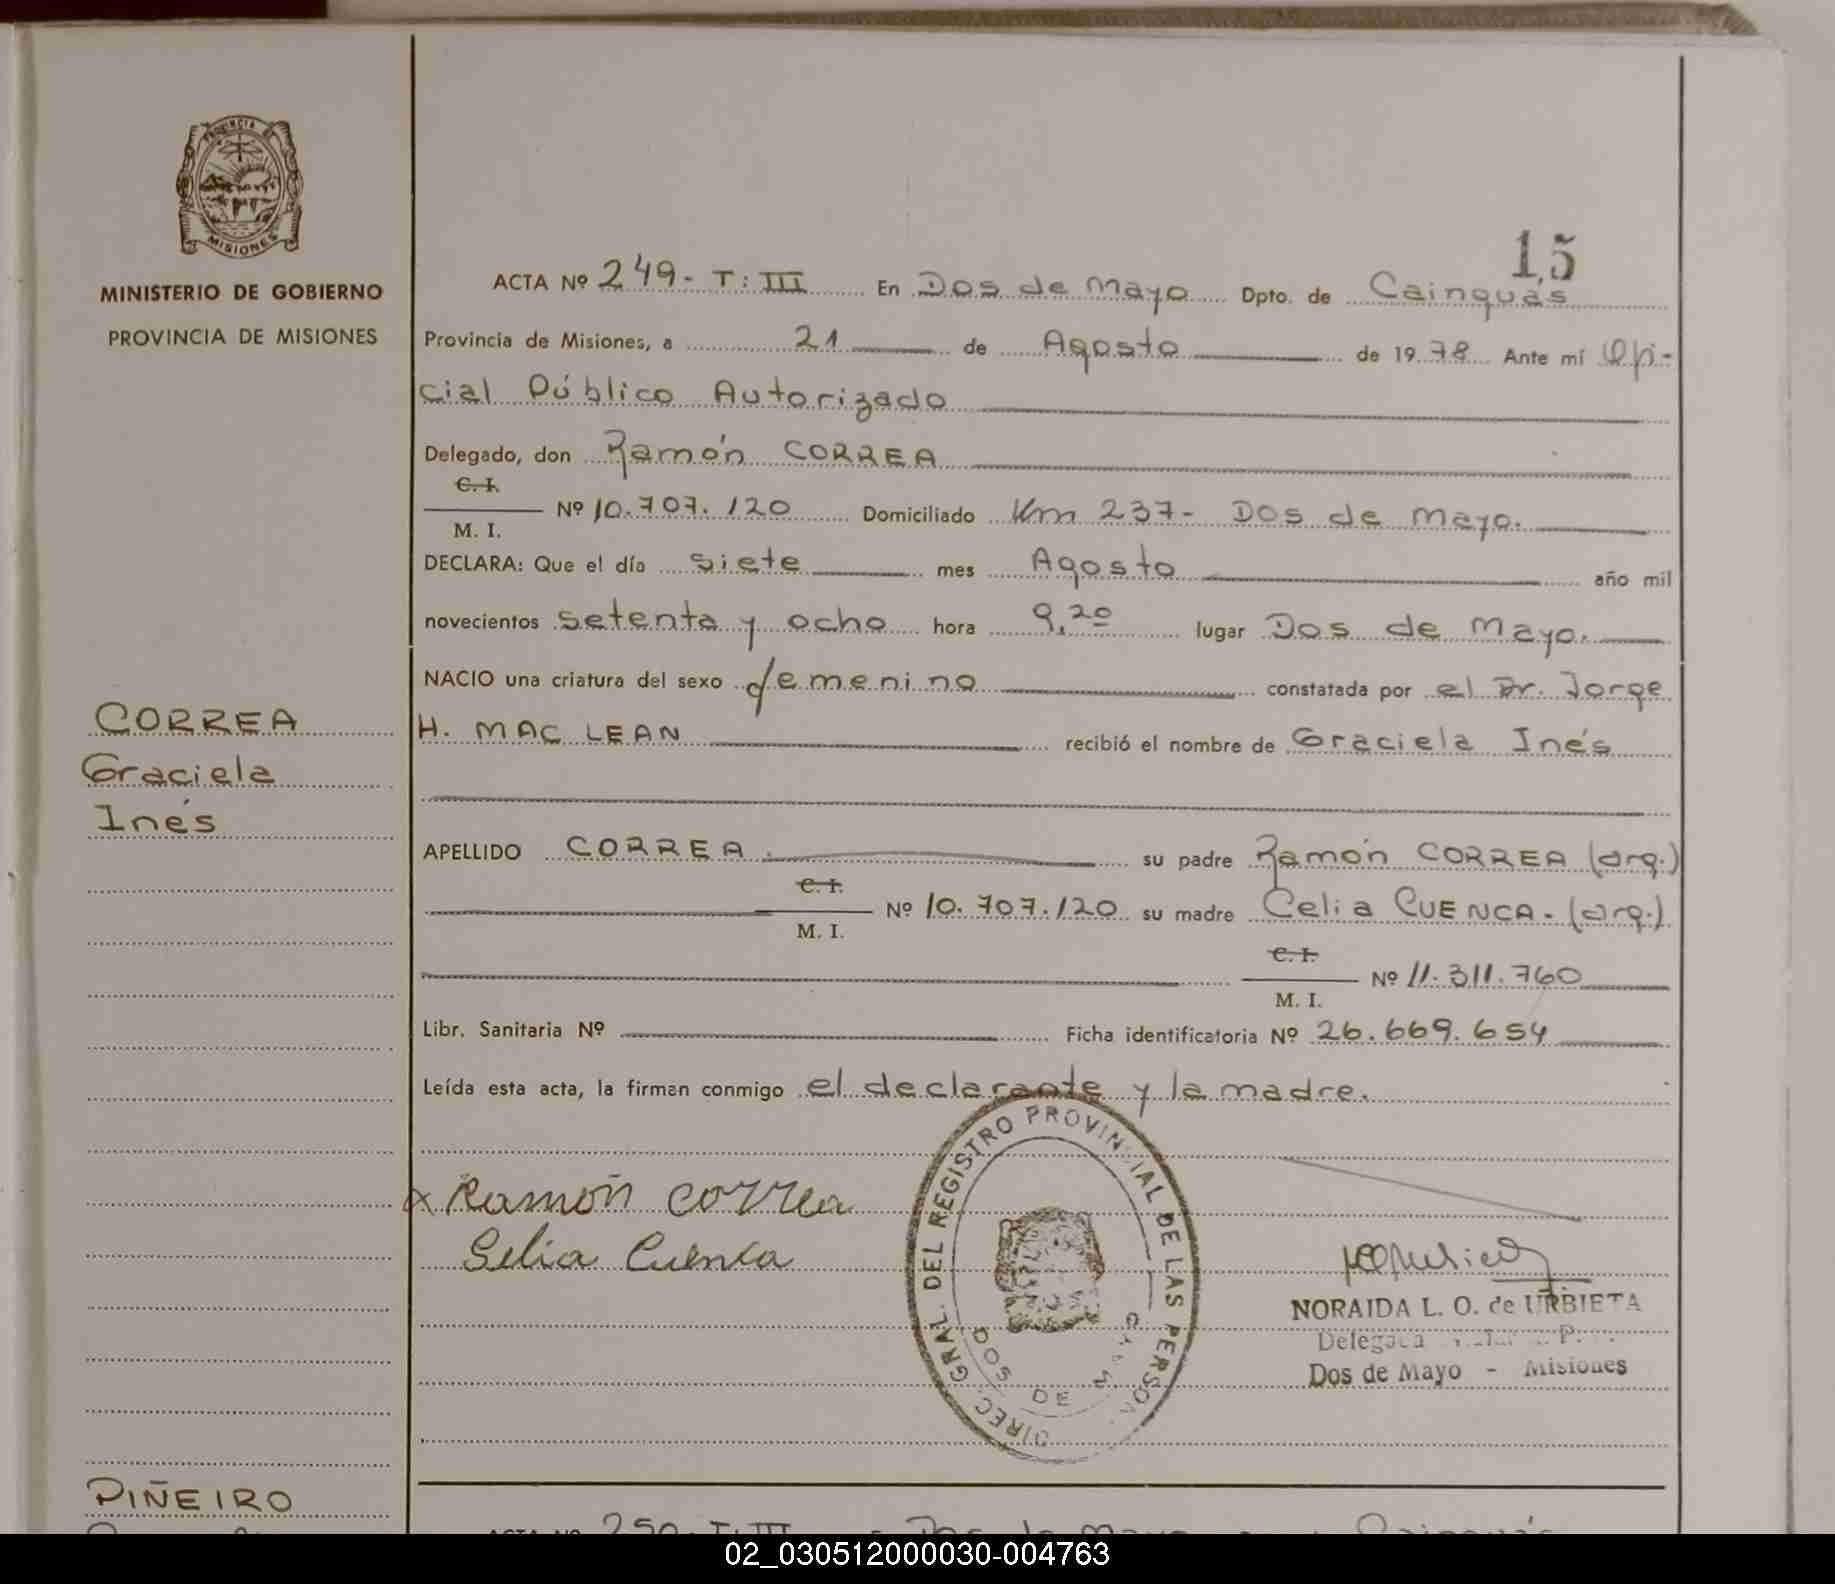 PROVINCIA DE
MISIONES
MINISTERIO DE GOBIERNO
PROVINCIA DE MISIONES
CORREA
Graciela
Inés
PIÑEIRO
15
ACTA Nº 249- T: III En Dos de Mayo Dpto. de Cainguás
Provincia de Misiones, a 21 de Agosto de 1978 Ante mí Ofi-
cial Público Autorizado
Delegado, don Ramón CORREA
C. I.
M. I. Nº 10.707.120 Domiciliado Km 237- Dos de Mayo.
DECLARA: Que el día siete mes Agosto año mil
novecientos setenta y ocho hora 9,20 lugar Dos de Mayo.
NACIO una criatura del sexo femenino constatada por el Dr. Jorge
H. MAC LEAN recibió el nombre de Graciela Inés
APELLIDO CORREA. su padre Ramón CORREA (arg.)
C. I.
M. I. Nº 10.707.120 su madre Celia CUENCA.- (arg.)
C. I.
M. I. Nº 11.311.760
Libr. Sanitaria Nº Ficha identificatoria Nº 26.669.654
Leída esta acta, la firman conmigo el declarante y la madre.
x Ramón Correa
Selia Cuenca
DIREC. GRAL. DEL REGISTRO PROVINCIAL DE LAS PERSON.
DOS DE
NORAIDA L. O. de URBIETA
Delegada
Dos de Mayo - Misiones
ACTA Nº 250- T: III En Dos de Mayo Cainguás
02_030512000030-004763